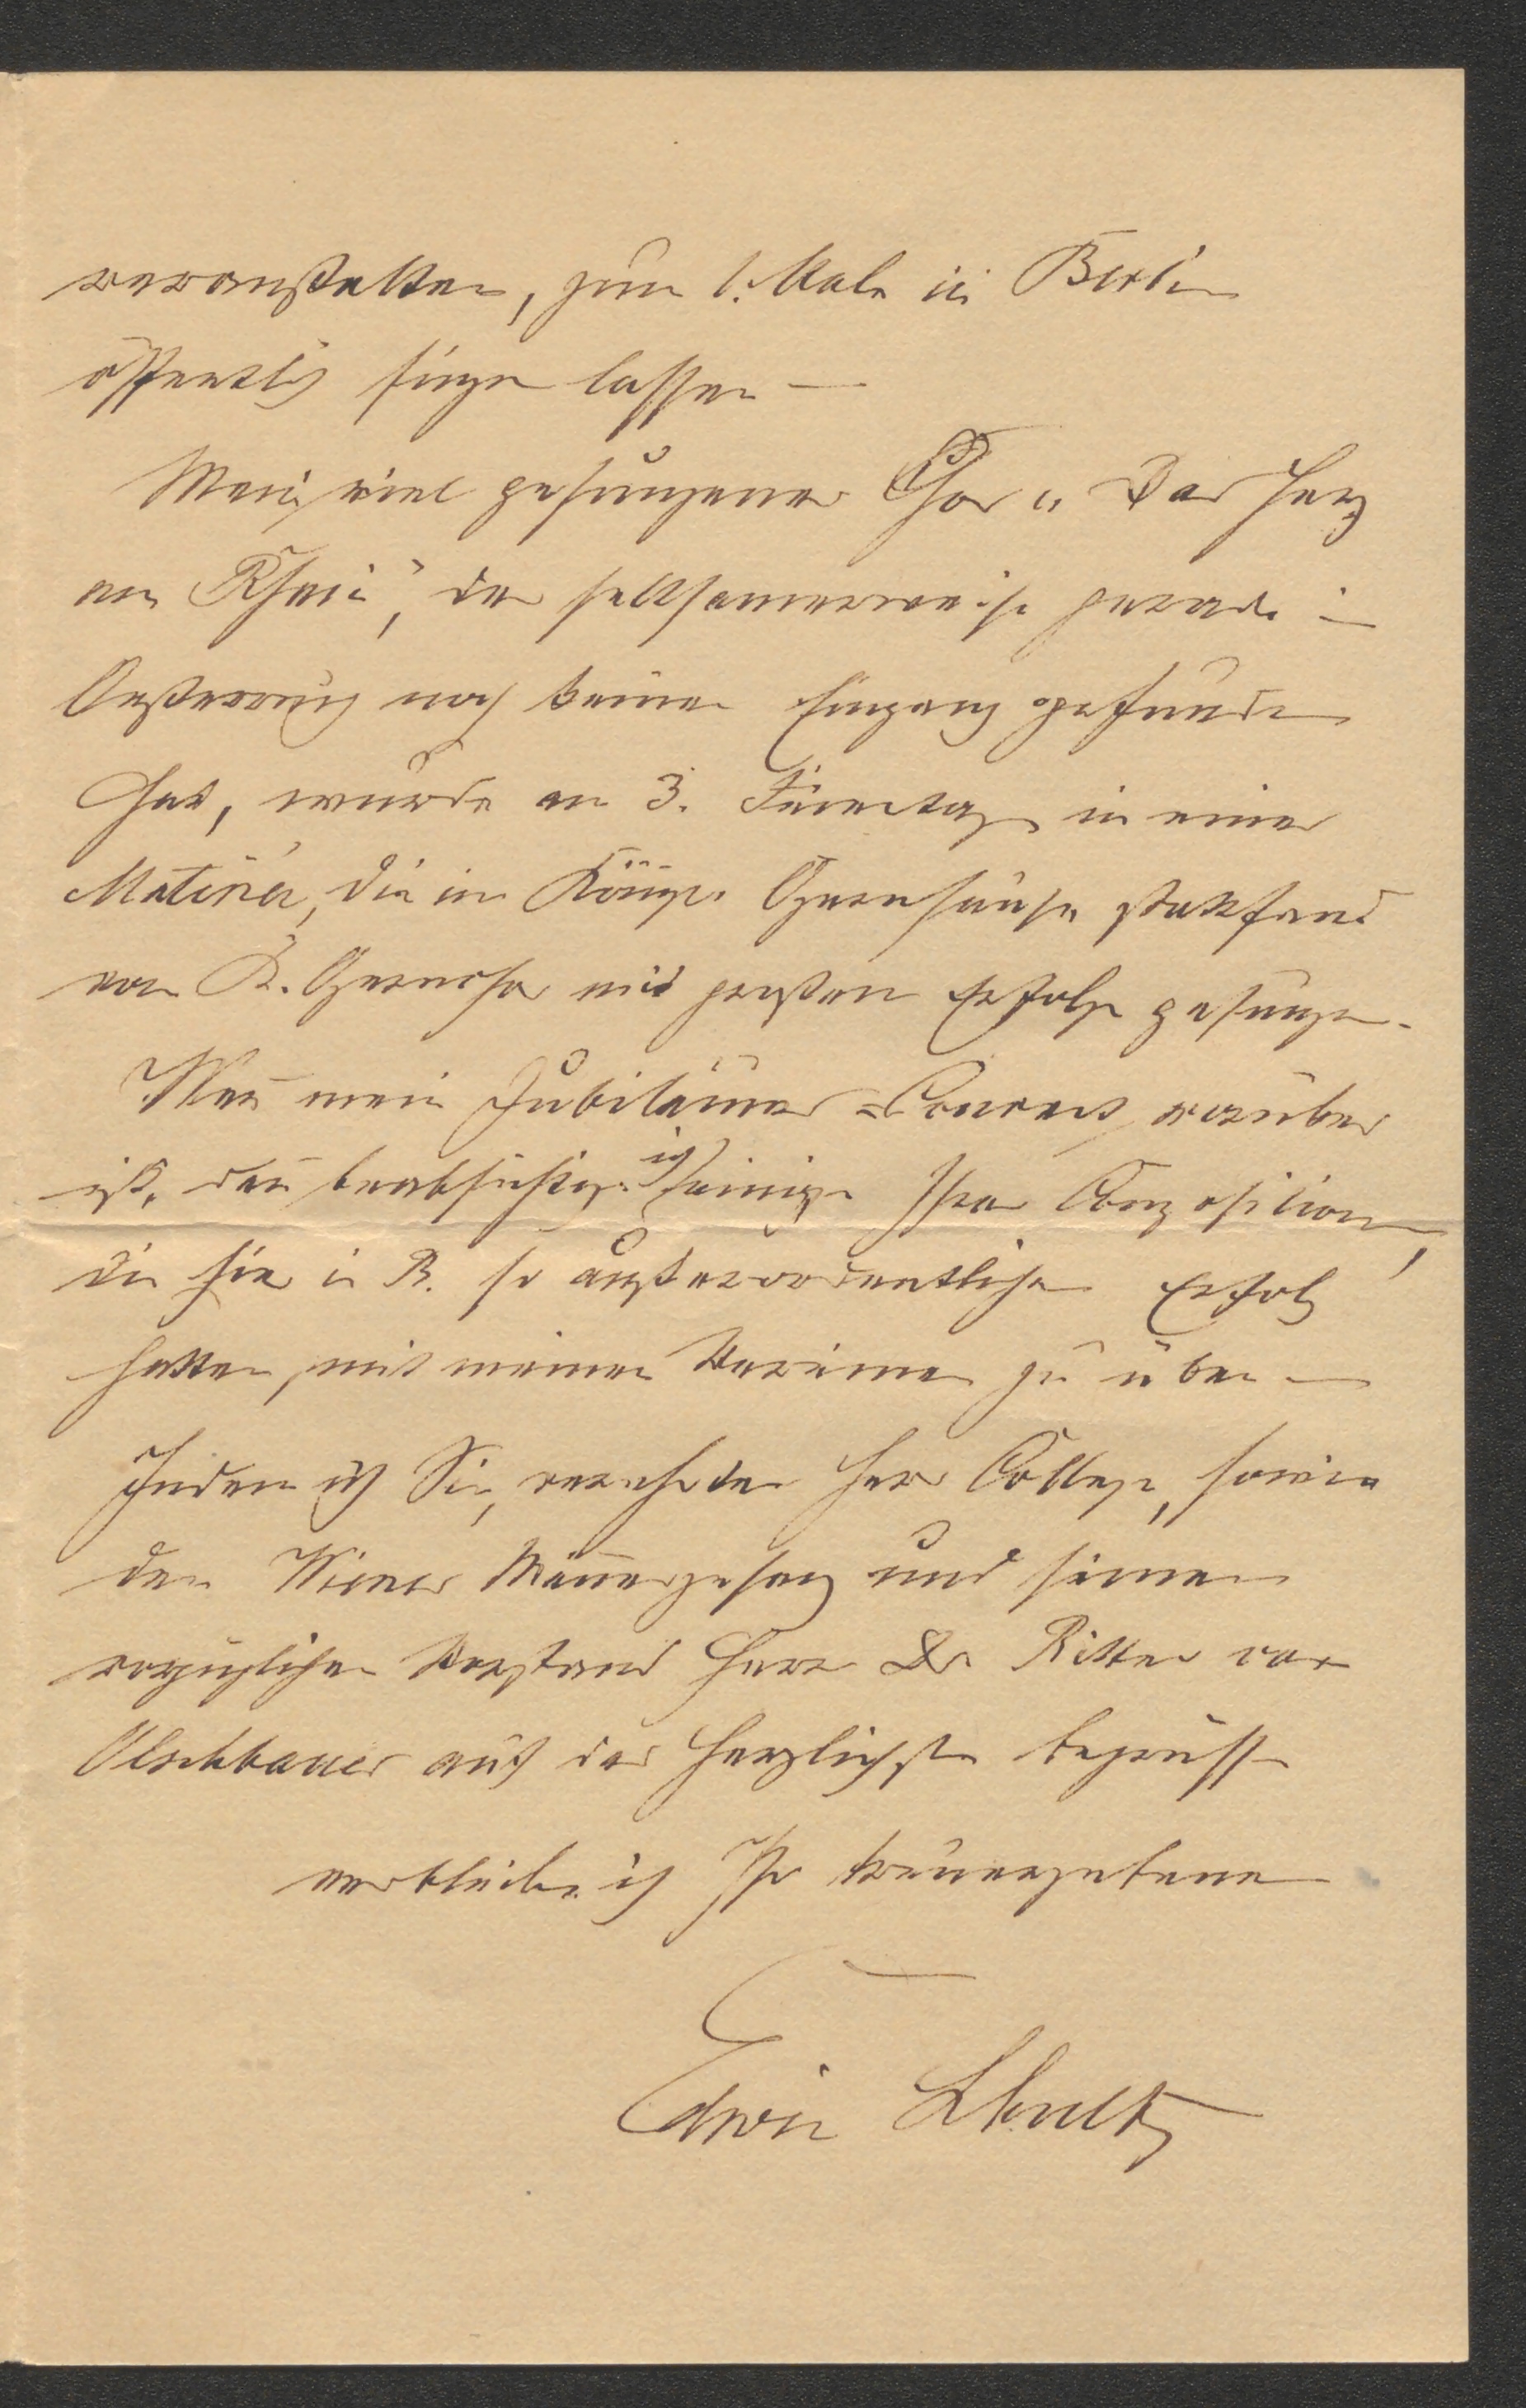 veranstalten, zum 1. Male in Berlin
öffentlich singen lassen —
Mein viel gesungener Chor „Das Herz
am Rhein“, der seltsamerweise gerade in
Oesterreich noch keinen Eingang gefunden
hat, wurde am 3. Feiertag in einer
Matinée, die im Königl. Opernhause stattfand
vom K. Opernchor mit großem Erfolge gesungen.
Wen̄ mein Jubiläums-Concert vorüber
ist, dan̄ beabsichtige ich einige Ihrer Compositionen,
die hier in B. so außerordentlichen Erfolg
hatten, mit meinen Vereinen zu üben —
Indem ich Sie, verehrter Herr College, sowie
den Wiener Män̄ergesang und seinen
vorzüglichen Vorstand Herrn Dr Ritter von
Olschbauer auf das herzlichste begrüsse
verbleibe ich Ihr treuergebener
Edwin Schultz